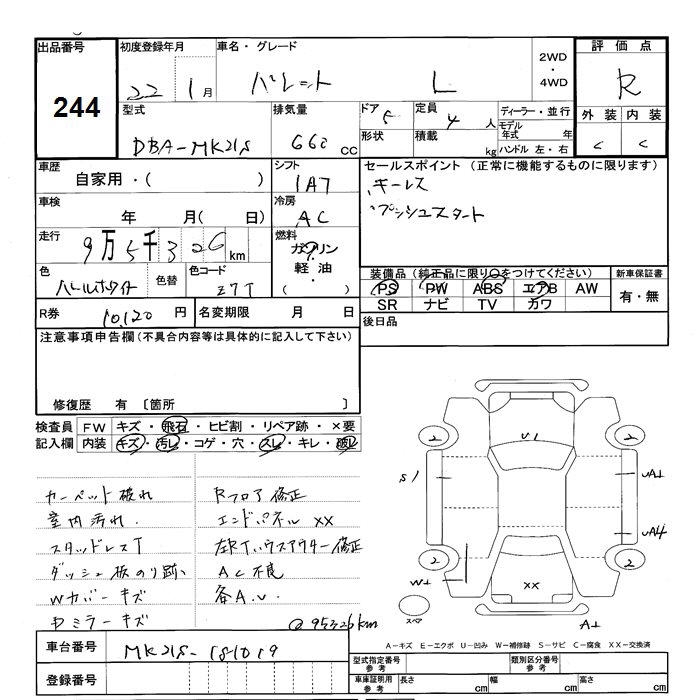 出品番号 244
初度登録年月 22 1月
車名・グレード パレット L
2WD・4WD
評価点 R
外装 内装
C C
型式 DBA-MK21S
排気量 660 cc
ドア 5
定員 4人
形状
積載 kg
ディーラー・並行
モデル年式 年
ハンドル 左・右
車歴 自家用・( )
シフト IAT
車検 年 月( 日)
冷房 AC
走行 9万5千326km
燃料 ガソリン 軽油・( )
色 パールホワイト
色替
色コード Z7T
R券 10,120円
名変期限 月 日
セールスポイント (正常に機能するものに限ります)
キーレス
プッシュスタート
装備品(純正品に限り○をつけてください)
PS PW ABS エアB AW
SR ナビ TV カワ
新車保証書
有・無
後日品
注意事項申告欄(不具合内容等は具体的に記入して下さい)
修復歴 有 〔箇所 〕
検査員記入欄
FW キズ・飛石・ヒビ割・リペア跡・×要
内装 キズ・汚レ・コゲ・穴・スレ・キレ・破レ
カーペット破れ
室内汚れ
スタッドレスT
ダッシュ板のり跡
Wカバーキズ
Dミラーキズ
Rフロア修正
エンドパネルXX
左RTハウスアウター修正
AC不良
各A.U.
@95326km
車台番号 MK21S-181019
登録番号
2 2
U1
S1
UA1
UA4
2 2
W1
XX
スペア
A1
A-キズ E-エクボ U-凹み W-補修跡 S-サビ C-腐食 XX-交換済
型式指定番号 参考
類別区分番号 参考
車庫証明用 参考
長さ cm
幅 cm
高さ cm